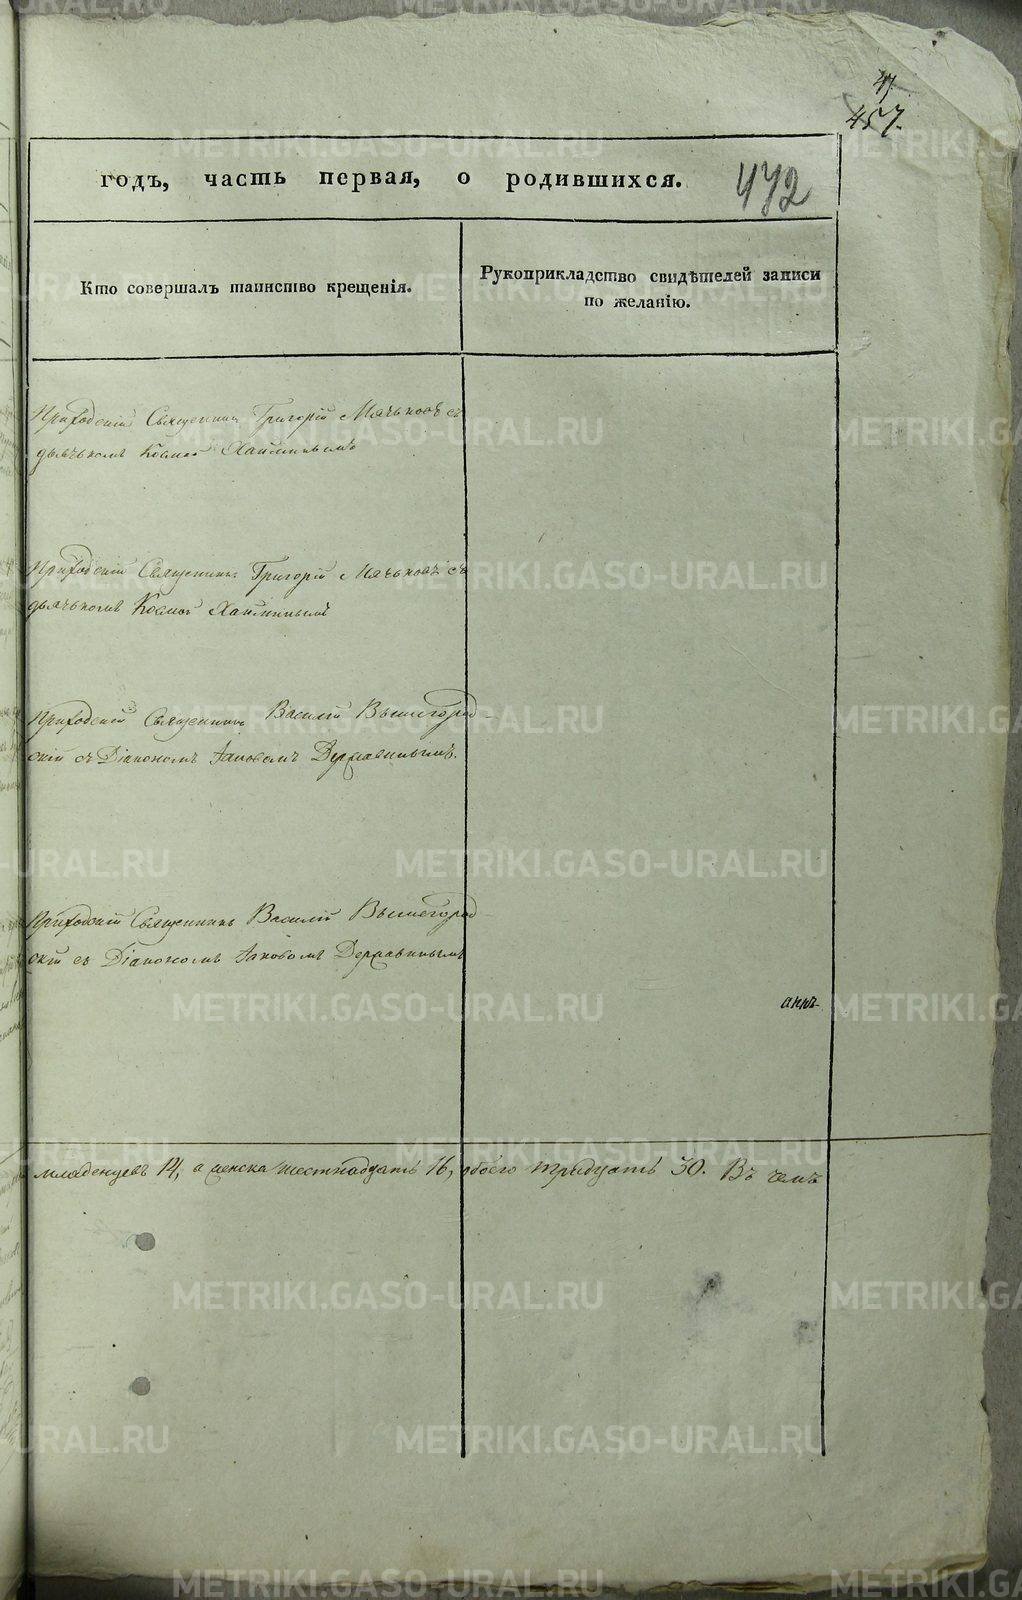 47.
457.
годъ, часть первая, о родившихся.
472
Кто совершалъ таинство крещенія.
Рукоприкладство свидѣтелей записи
по желанію.
Приходскій Священникъ Григорій Мячьковъ съ
дьячькомъ Космою
Приходскій Священникъ Григорій Мячьковъ съ
дьячькомъ Космою
Приходскій Священникъ Василій Вышегород-
скій съ Діакономъ Іаковомъ Державинымъ.
Приходскій Священникъ Василій Вышегород
скій съ Діакономъ Іаковомъ Державинымъ
младенцевъ 14, а женска шестнадцать 16, обоего тридцать 30. Въ чемъ
METRIKI.GASO-URAL.RU